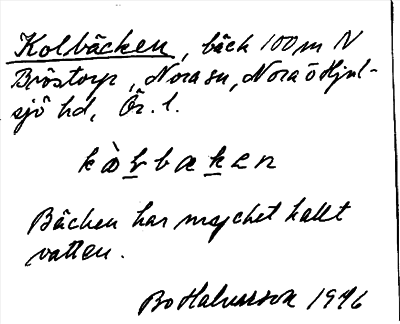 Kolbäcken, bäck 100 m N
Bröstorp, Nora sn, Nora o Hjul-
sjö hd, Ör. l.
kàɽbakɛn
Bäcken har mycket kallt
vatten.
Bo Halvarsson 1946